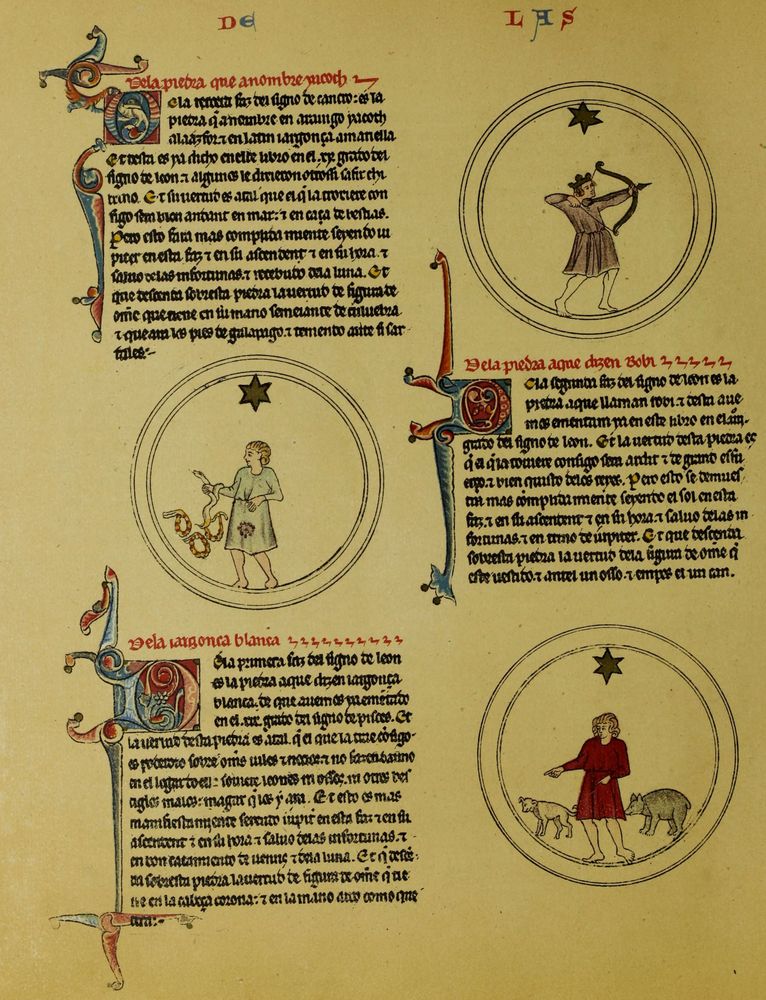 DE LAS
Dela piedra que anombre yacoch
De la tercera faz del signo de cancro: es la
piedra q̃ a nombre en arauigo yacoch
alaazfor. ⁊ en latin iargonça amariella
Et desta es ya dicho en el de libro en el .xx. grado del
signo de leon. ⁊ algunos le dixieron otrossi safir
trino. Et su uertud es atal que el q̃ la troxiere con
sigo sera bien andant en mar: ⁊ en caça de bestias.
Pero esto fara mas complida miente seyendo iu
piter en esta faz ⁊ en su ascendent ⁊ en su hora. ⁊
saluo delas infortunas. ⁊ recebudo dela luna. Et
que descenda sobresta piedra la uertud de figura de
ome que tiene en su mano semeiante de culuebra
⁊ que aya los pies de galapago. ⁊ temiendo ante si sar
tales:-
Dela iargonça blanca
De la primera faz del signo de leon
es la piedra a que dizen iargonça
blanca. de que auemos ya ementado
en el .xix. grado del signo de pisces. Et
la uertud desta piedra es atal. q̃ el que la trae cõsigo.
es poderoso sobre omes uiles ⁊ necios: ⁊ no fazen danno
en el logar do el: souiere leones ni ossos. ni otros
tiglos malos: magar q̃ los y aya. Et esto es mas
manifiesta miente seyendo iupiter en esta faz ⁊ en su
ascendent ⁊ en su hora ⁊ saluo delas infortunas. ⁊
en bon catamiento de uenus ⁊ dela luna. Et q̃ descẽ-
da sobresta piedra la uertud de figura de ome q̃ tie
ne en la cabeça corona: ⁊ en la mano arco como que
tira:-
Dela piedra aque dizen Robi
De la segunda faz del signo de leon es la
piedra aque llaman robi. ⁊ desta aue
mos ementam ya en este libro en el
grado del signo de leon. Et la uertud desta piedra es
q̃ el q̃ la touiere consigo sera ardit ⁊ de grand esfu
erço. ⁊ bien quisto delos reyes. Pero esto se demues
tra mas cõplida miente seyendo el sol en esta
faz. ⁊ en su ascendent ⁊ en su hora. ⁊ saluo delas in
fortunas. ⁊ en trino de iupiter. Et que descenda
sobresta piedra la uertud dela figura de ome q̃
este uestido. ⁊ antel un osso. ⁊ empos el un can.